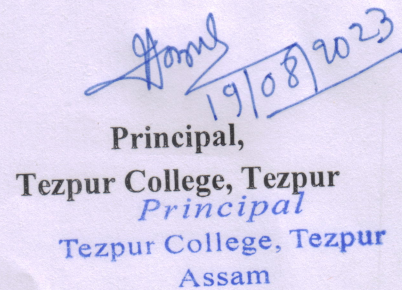 19/08/2023
Principal,
Tezpur College, Tezpur
Principal
Tezpur College, Tezpur
Assam